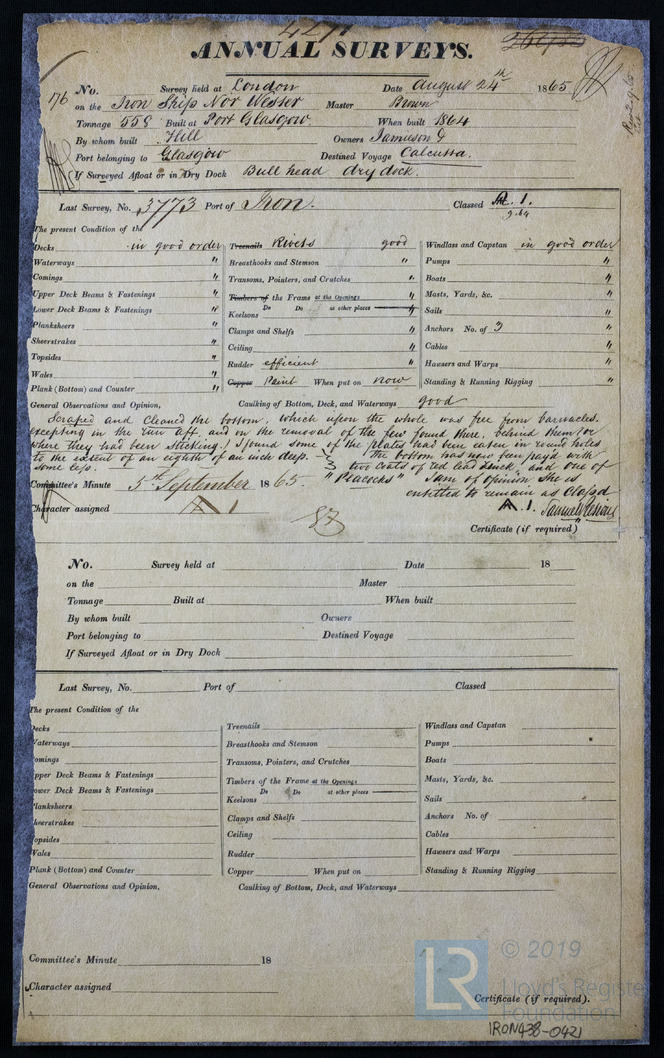 4271
ANNUAL SURVEYS.
176 No. Survey held at London Date August 24th 1865
on the Iron Ship Nor Wester Master Brown
Tonnage 558 Built at Port Glasgow. When built 1864
By whom built Hill Owners Jamieson &
Port belonging to Glasgow Destined Voyage Calcutta.
If Surveyed Afloat or in Dry Dock Bull head dry dock.
Last Survey, No. 3773 Port of Iron. Classed A. 1.
9.64
The present Condition of the
Decks in good order Treenails Rivets good Windlass and Capstan in good order
Waterways " Breasthooks and Stemson " Pumps "
Comings " Transoms, Pointers, and Crutches " Boats "
Upper Deck Beams & Fastenings " Timbers of the Frame at the Openings " Masts, Yards, &c. "
Lower Deck Beams & Fastenings " Keelsons Do Do at other places " Sails "
Planksheers " Clamps and Shelfs " Anchors No. of 3 "
Sheerstrakes " Ceiling " Cables "
Topsides " Rudder efficient Hawsers and Warps "
Wales " Copper Paint When put on now Standing & Running Rigging "
Plank (Bottom) and Counter "
General Observations and Opinion, Caulking of Bottom, Deck, and Waterways good
Scraped and Cleaned the bottom, which upon the whole was free from barnacles.
excepting in the run aft, and on the removal of the few found there, behind them (or
where they had been sticking) I found some of the plates had been eaten in round holes
to the extent of an eighth of an inch deep. & the bottom has now been payed with
some less. 3 two coats of red lead & zinc, and one of
Committee's Minute 5th September 1865. "Peacocks" I am of opinion she is
entitled to remain as Classed
Character assigned A 1 A. 1. Samuel
Certificate (if required)
No. Survey held at Date 18
on the Master
Tonnage Built at When built
By whom built Owners
Port belonging to Destined Voyage
If Surveyed Afloat or in Dry Dock
Last Survey, No. Port of Classed
The present Condition of the
Decks Treenails Windlass and Capstan
Waterways Breasthooks and Stemson Pumps
omings Transoms, Pointers, and Crutches Boats
pper Deck Beams & Fastenings Timbers of the Frame at the Openings Masts, Yards, &c.
ower Deck Beams & Fastenings Keelsons Do Do at other places Sails
lanksheers Clamps and Shelfs Anchors No. of
heerstrakes Ceiling Cables
opsides Rudder Hawsers and Warps
Wales Copper When put on Standing & Running Rigging
Plank (Bottom) and Counter
General Observations and Opinion, Caulking of Bottom, Deck, and Waterways
Committee's Minute 18
Character assigned
Certificate (if required).
LR © 2019
Lloyd's Register
Foundation
IRON438-0421